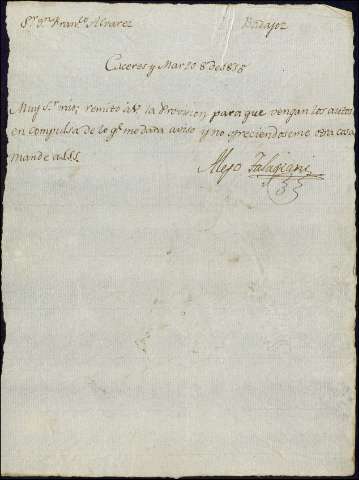 Sr. Dn. Franco. Alvarez Badajoz
Caceres y Marzo 8 de 1815
Muy Sr. mio; remito a V. la Provision para que vengan los autos
en compulsa de lo qe. me dara aviso y no ofreciendoseme otra cosa
mande a S.S.S.
Alejo